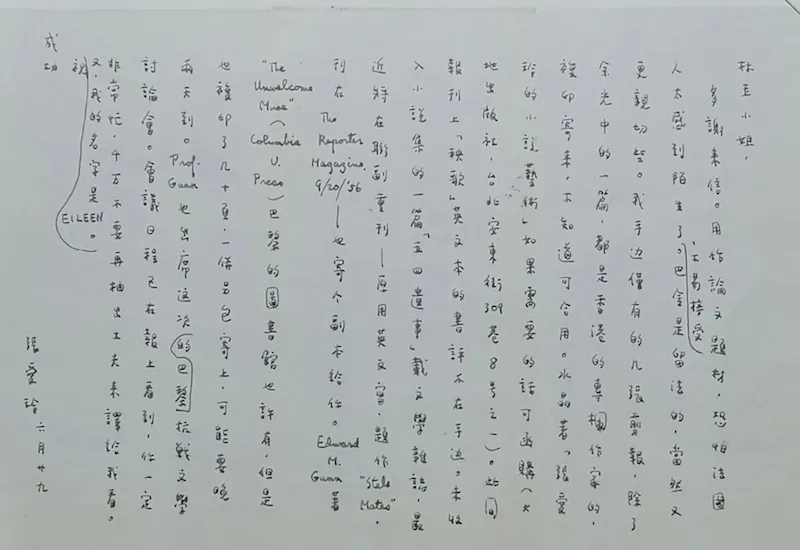 林豆小姐，
多謝來信。用作論文題材，恐怕法國
人太感到陌生了，不易接受。巴金是留法的，當然又
更親切些。我手边僅有的几張剪報，除了
余光中的一篇都是香港的專欄作家的，
複印寄來，不知道可合用。水晶著「張愛
玲的小說藝術」如果需要的話可函購(大
地出版社，台北安東街309巷8号之一)。此间
報刊上「秧歌」英文本的書評不在手边。未收
入小說集的一篇「五四遺事」載文學雜誌，最
近將在聯副重刊—原用英文寫，題作"Stale Mates"，
刊在The Reporter Magazine, 9/20/'56—也寄个副本給你。Edward M. Gunn著
"The Unwelcome Muse" (Columbia U. Press)巴黎的圖書館也許有，但是
也複印了几十頁，一併另包寄上，可能要晚
兩天到。Prof. Gunn也出席这次的巴黎抗戰文學
討論會。會議日程已在報上看到，你一定
非常忙，千万不要再抽出工夫來譯給我看。
又，我的名字是EILEEN。
祝
成功
張愛玲 六月廿九